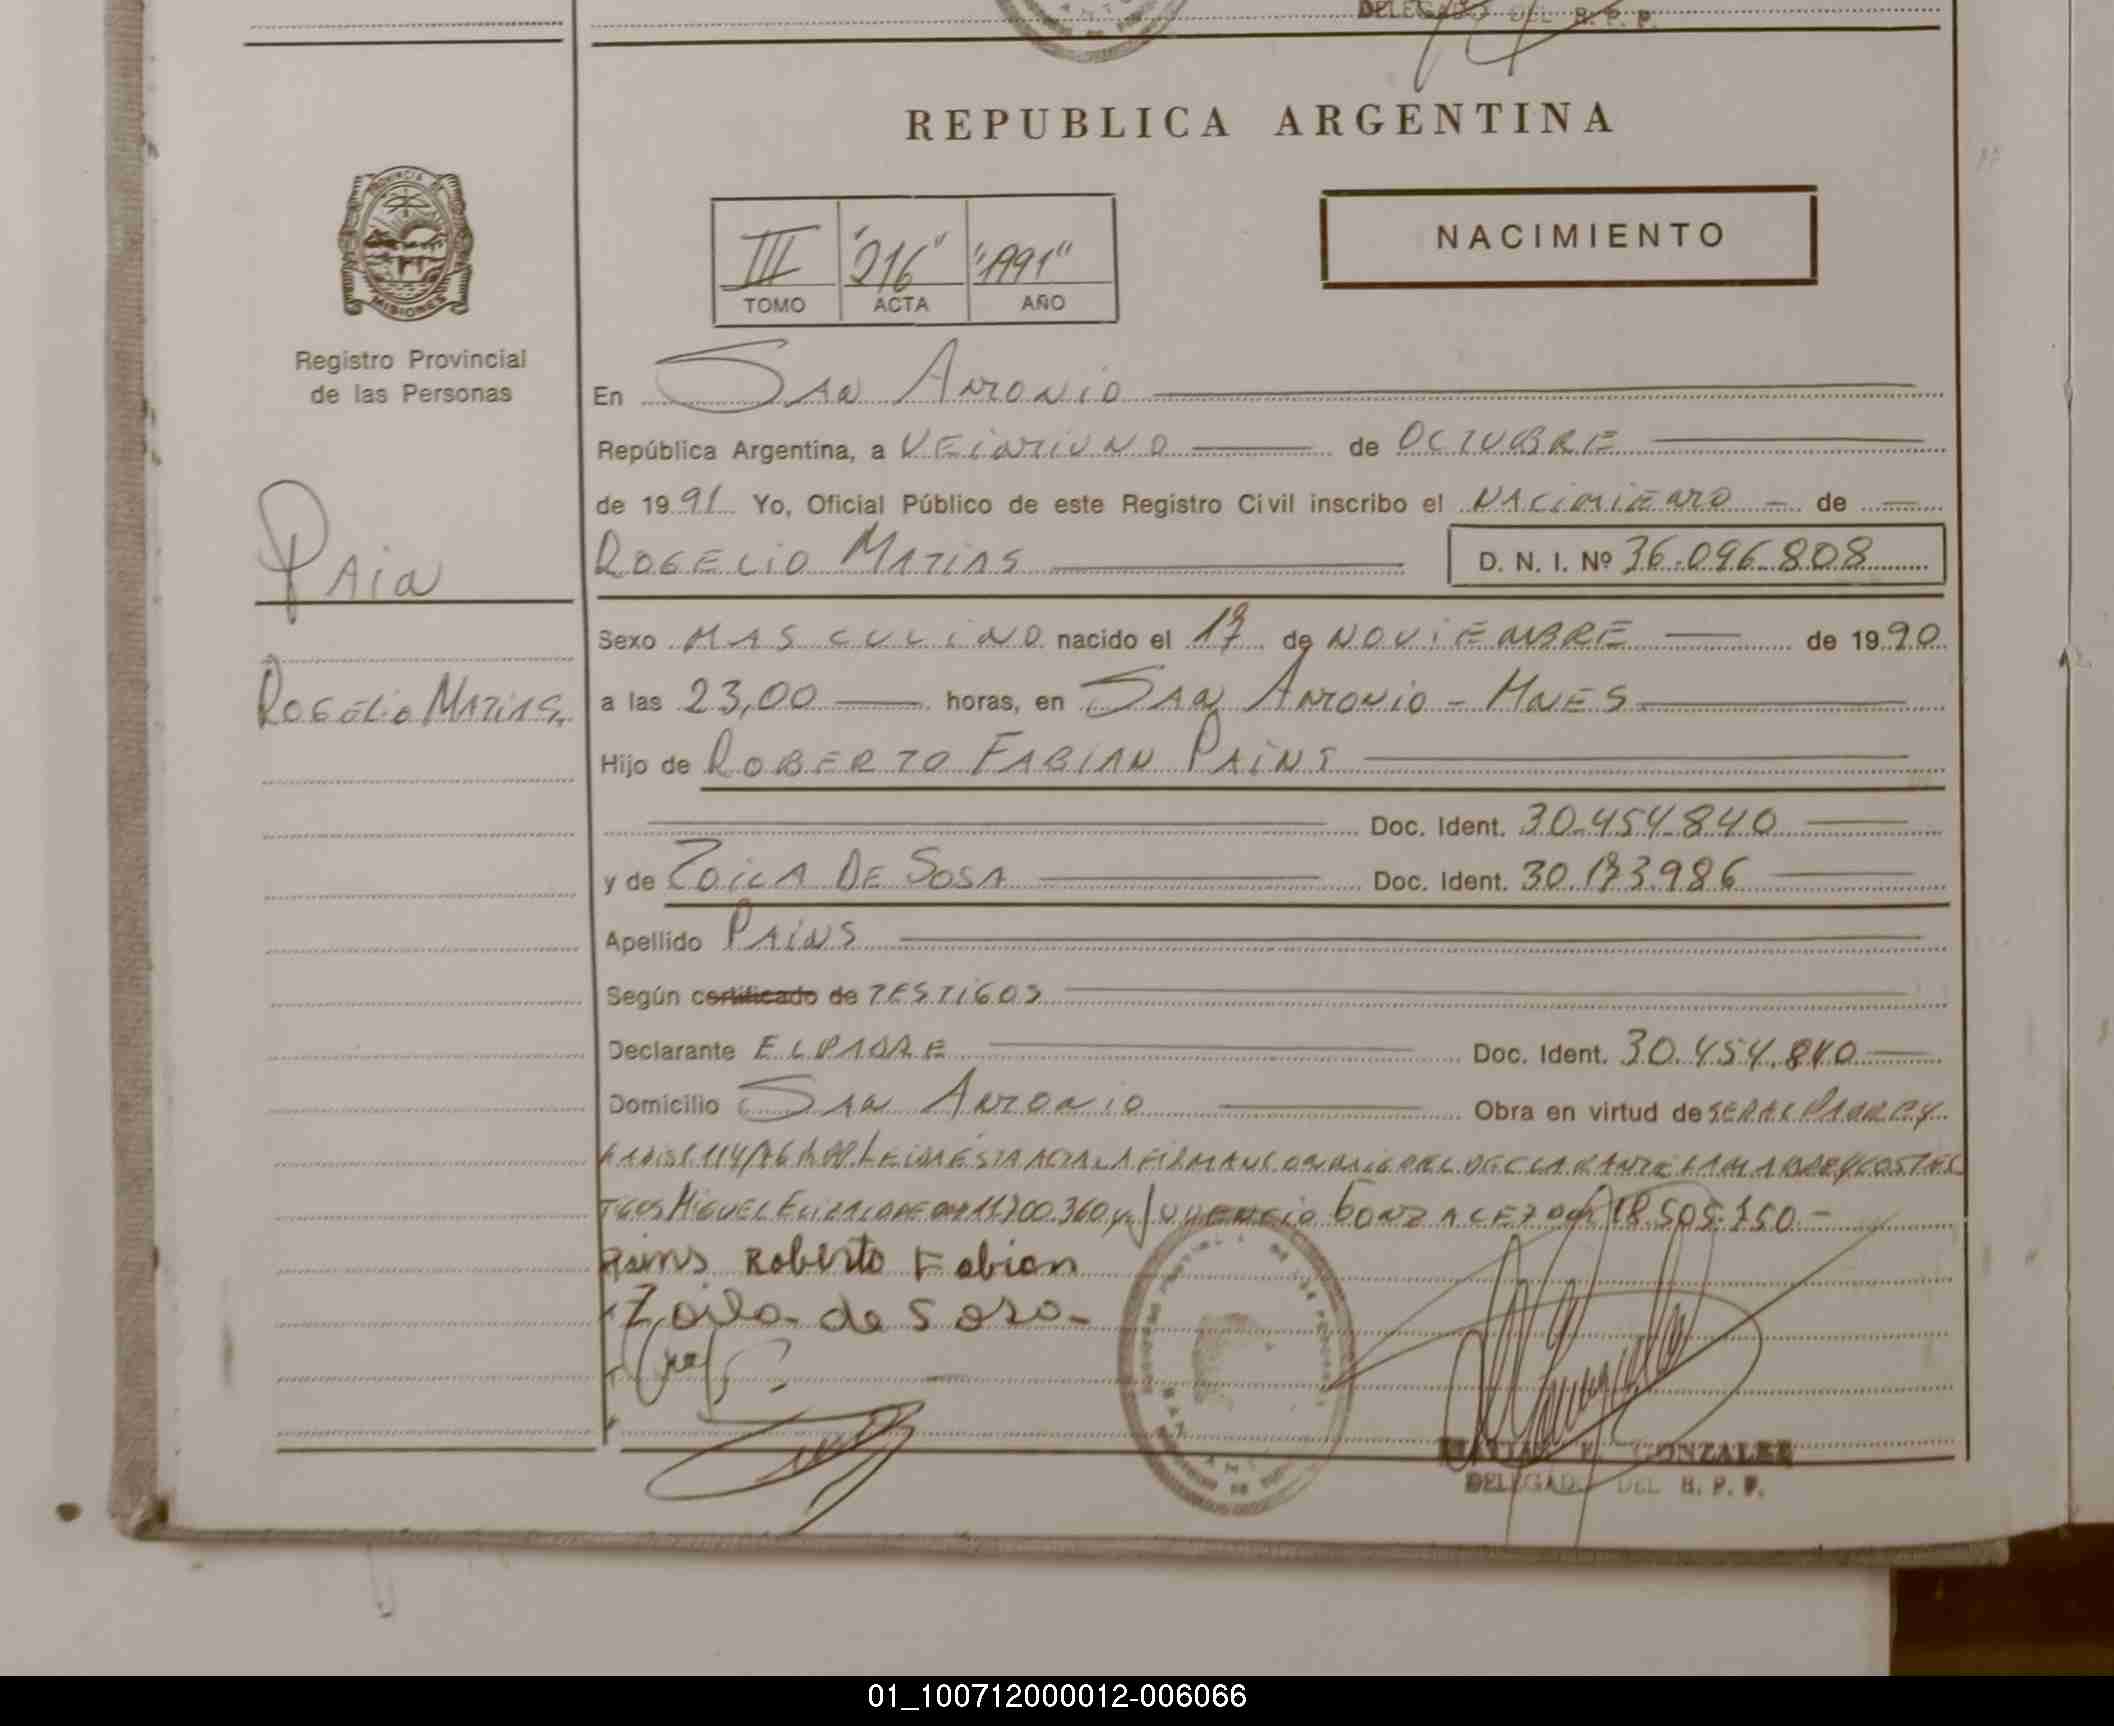 DELEGADO DEL R. P. P.
REPUBLICA ARGENTINA
PROVINCIA DE
MISIONES
Registro Provincial
de las Personas
III "216" "1991"
TOMO ACTA AÑO
NACIMIENTO
En San Antonio
República Argentina, a Veintiuno de Octubre
de 1991 Yo, Oficial Público de este Registro Civil inscribo el Nacimiento de
Rogelio Matias D. N. I. Nº 36.096.808
Pain
Rogelio Matias
Sexo Masculino nacido el 17 de Noviembre de 1990
a las 23,00 horas, en San Antonio - Mnes
Hijo de Roberto Fabian Pains
Doc. Ident. 30.454.840
y de Zoila De Sosa Doc. Ident. 30.173.986
Apellido Pains
Según certificado de Testigos
Declarante El Padre Doc. Ident. 30.454.840
Domicilio San Antonio Obra en virtud de ser el Padre y
Leida esta acta la firman el declarante la madre y los
Miguel Elizalde 11.700.360 y Juvencio Gonzalez 18.505.150 -
Pains Roberto Fabian
Zoila de Sosa
GONZALEZ
DELEGADO DEL R. P. P.
01_100712000012-006066